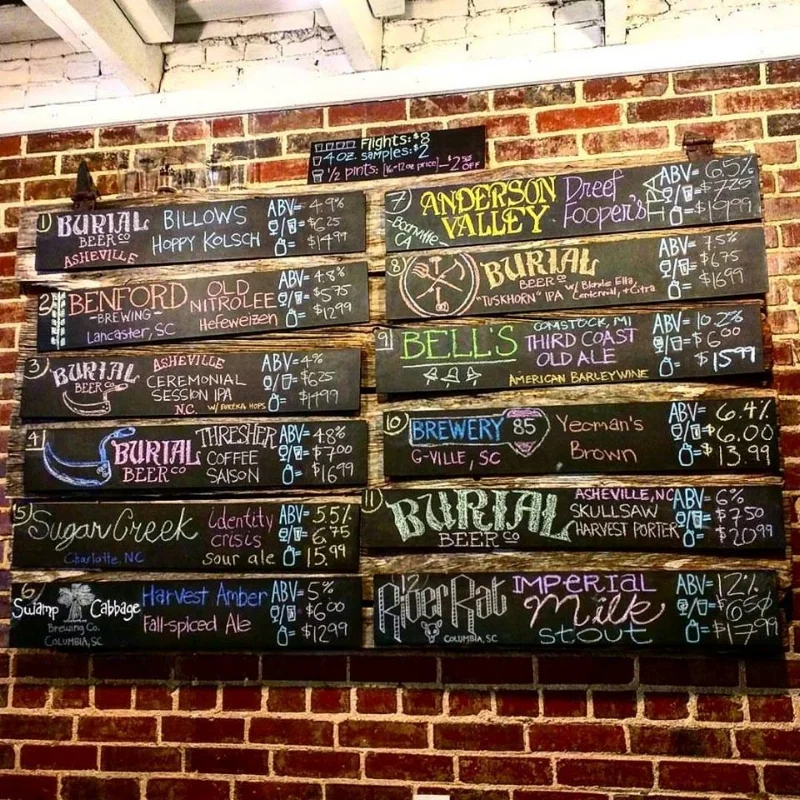 Flights: $8
4 oz. samples: $2
1/2 pints: (16-12oz price) - $2.50 OFF
1) BURIAL BEER CO ASHEVILLE
BILLOWS HOPPY KOLSCH
ABV= 4.9%
$6.25
= $14.99
2) BENFORD -BREWING- Lancaster, SC
OLD NITROLEE Hefeweizen
ABV= 4.8%
= $5.75
= $12.99
3) BURIAL BEER CO
ASHEVILLE
CEREMONIAL
SESSION IPA
N.C. W/ EUREKA HOPS
ABV= 4%
= $6.25
= $14.99
4) BURIAL BEER CO
THRESHER
COFFEE
SAISON
ABV= 4.8%
= $7.00
= $16.99
5) Sugar Creek
Charlotte, NC
identity
crisis
sour ale
ABV= 5.5%
= 6.75
= 15.99
6) Swamp Cabbage
Brewing Co.
COLUMBIA, SC
Harvest Amber
Fall-spiced Ale
ABV= 5%
= $6.00
= $12.99
7) ANDERSON VALLEY
Boonville, CA
Dreef
Fooper's
IPA
ABV= 6.5%
= $7.25
= $19.99
8) BURIAL BEER CO
"TUSKHORN" IPA w/ Blonde Ella, Centennial, + Citra
ABV= 7.5%
= $6.75
= $16.99
9) BELL'S
COMSTOCK, MI
THIRD COAST
OLD ALE
AMERICAN BARLEYWINE
ABV= 10.2%
= $6.00
= $15.99
10) BREWERY 85
G-VILLE, SC
Yeoman's
Brown
ABV= 6.4%
= $6.00
= $13.99
11) BURIAL BEER CO
ASHEVILLE, NC
SKULLSAW
HARVEST PORTER
ABV= 6%
= $7.50
= $20.99
12) River Rat
COLUMBIA, SC
IMPERIAL
Milk
Stout
ABV= 12%
= $6.50
= $17.99